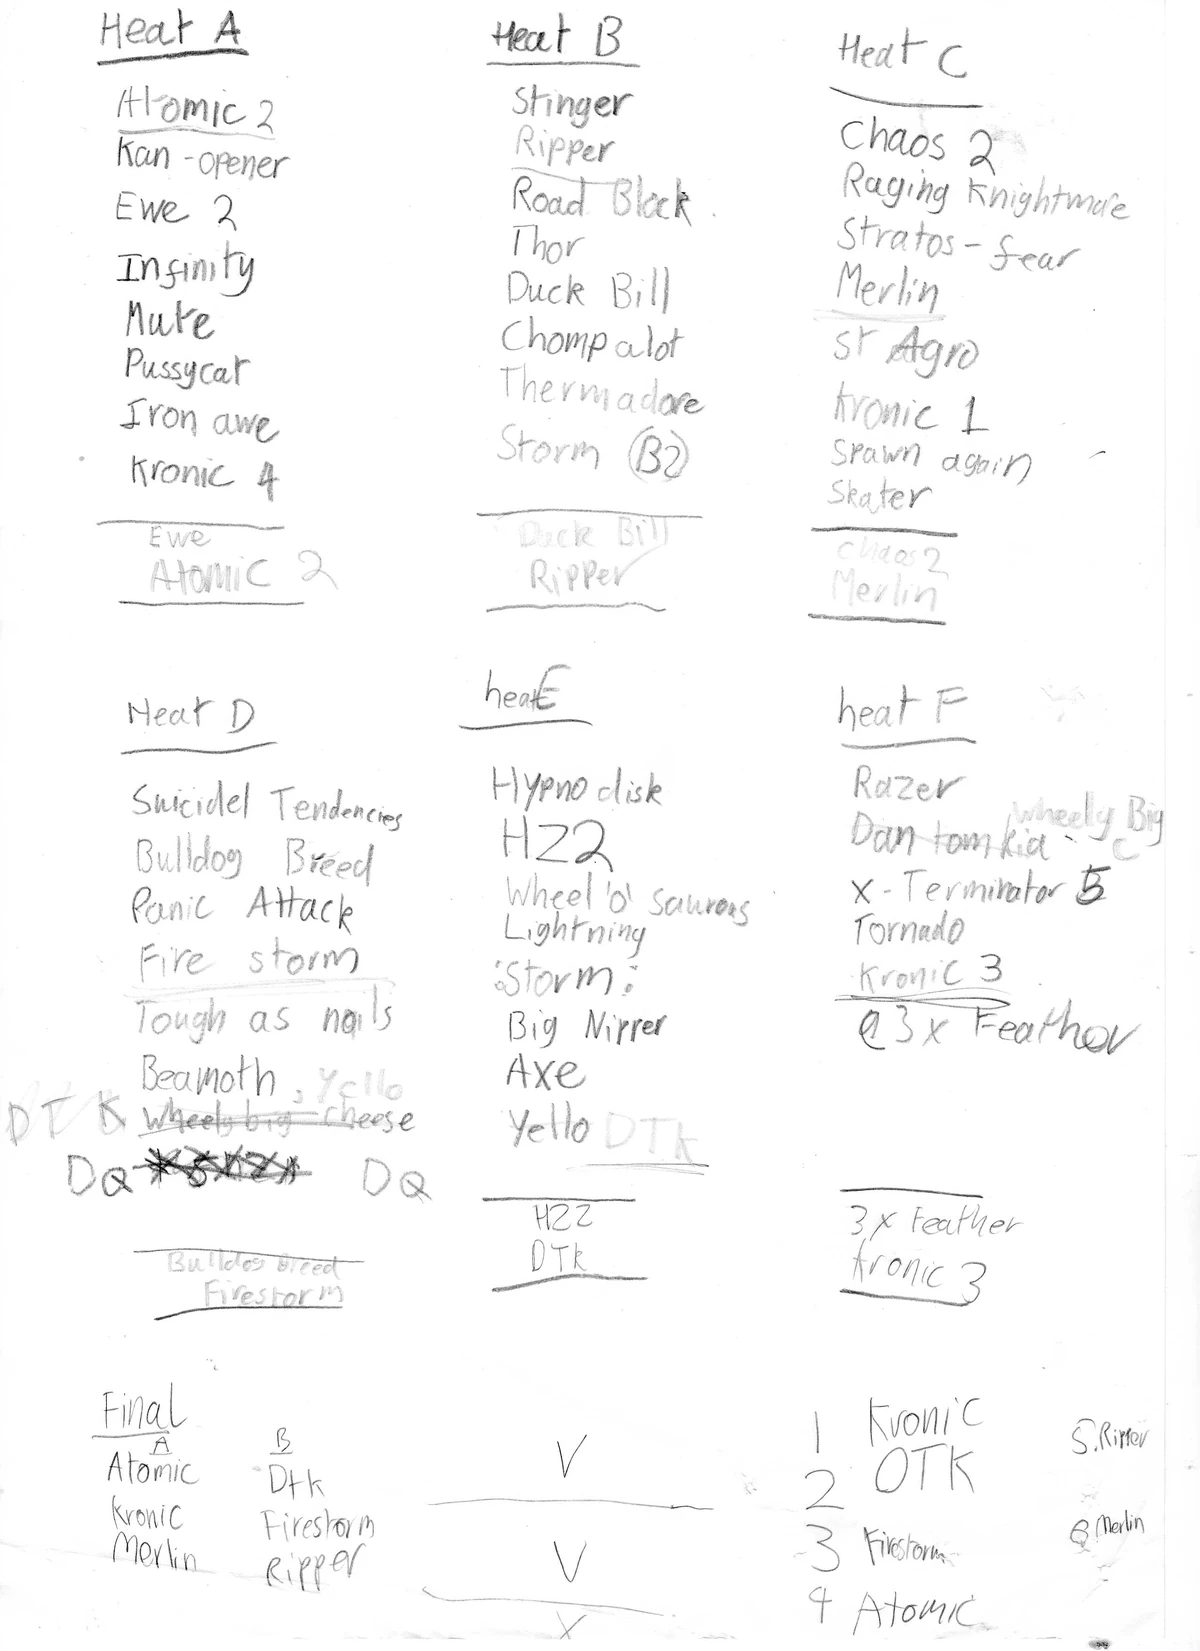 Heat A
Atomic 2
Kan-opener
Ewe 2
Infinity
Mute
Pussycat
Iron awe
Kronic 4
Ewe
Atomic 2
Heat B
Stinger
Ripper
Road Block
Thor
Duck Bill
Chompalot
Thermadore
Storm (B2)
Duck Bill
Ripper
Heat C
Chaos 2
Raging Knightmare
Stratos-fear
Merlin
St Agro
Kronic 1
Spawn again
Skater
Chaos 2
Merlin
Heat D
Suicidel Tendencies
Bulldog Breed
Panic Attack
Fire storm
Tough as nails
Beamoth, Yello
DTK Wheely big cheese
DQ DQ
Bulldog Breed
Firestorm
heat E
Hypno disk
HZ2
Wheel 'o' Saurous
Lightning
:Storm:
Big Nipper
Axe
Yello DTK
HZ2
DTK
heat F
Razer
Dantomkia Wheely Big C
X-Terminator 5
Tornado
Kronic 3
3x Feather
3x Feather
Kronic 3
Final
A
Atomic
Kronic
Merlin
B
Dtk
Firestorm
Ripper
V
V
X
1 Kronic
2 DTK
3 Firestorm
4 Atomic
5. Ripper
6 Merlin